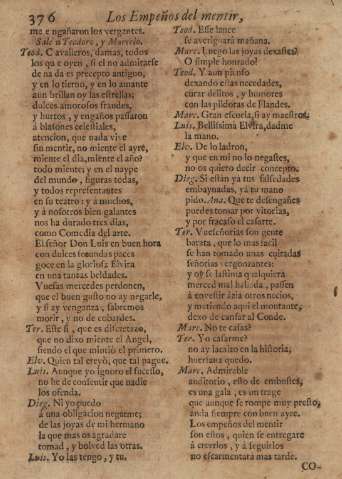 376 Los Empeños del mentir,
me engañaron los vergantes.
Sale Teodoro, y Marcelo.
Teod. Cavalleros, damas, todos
los que oyen, si el no admirarse
de nada es precepto antiguo,
y en lo tierno, y en lo amante
aun brillan oy las estrellas;
dulces amorosos fraudes,
y hurtos, y engaños passaron
à blasones celestiales,
atencion, que nada vive
sin mentir, no miente el ayre,
miente el dia, miente el año?
todo miente; y en el naype
del mundo, figuras todas,
y todos representantes
en su teatro: y a muchos,
y à nosotros bien galantes
nos ha durado tres dias,
como Comedia del arte.
El señor Don Luis en buen hora
con dulces fecundas paces
goce en la gloriosa Elvira
en una tantas beldades.
Vuesas mercedes perdonen,
que el buen gusto no ay negarle,
y si ay venganza, sabremos
morir, y no de cobardes.
Ter. Este si, que es discretazo,
que no dixo miente el Angel,
siendo el que mintiò el primero.
Elv. Quien tal creyò, que tal pague.
Luis. Aunque yo ignoro el sucesso,
no he de consentir que nadie
los ofenda.
Dieg. Ni yo puedo
à una obligacion negarme;
de las joyas de mi hermano
la que mas os agradare
tomad, y bolved las otras.
Luis. Yo las tengo, y tu.
Teod. Esse lance
se averiguarà mañana.
Marc. Luego las joyas dexaste?
O simple honrado!
Teod. Y aun pienso
dexando estas necedades,
curar delitos, y humores
con las pildoras de Flandes.
Marc. Gran escuela, si ay maestros.
Luis. Bellissima Elvira, dadme
la mano.
Elv. De lo ladron,
y que en mi no lo negastes,
no os quiero decir concepto.
Dieg. Si estàn ya tus falsedades
embaynadas, yà tu mano
pido. Ana. Que te desengañes
puedes tomar por vitorias,
y por fracaso el casarte.
Ter. Vueseñorias son gente
barata, que lo mas facil
se han tomado unas cuitadas
señorias vergonzantes:
y oy se lastima qualquiera
merced mal habida, passen
à envestir àzia otros necios,
y metiendo aqui el montante,
dexo de cansar al Conde.
Marc. No te casas?
Ter. Yo casarme?
no ay lacaito en la historia;
huerfana quedo.
Marc. Admirable
auditorio, esto de embustes,
es una gala, es un trage
que aunque se rompe muy presto,
anda siempre con buen ayre.
Los empeños del mentir
son estos, quien se entregare
à creerlos, y à seguirlos
no escarmentara mas tarde.
CO-